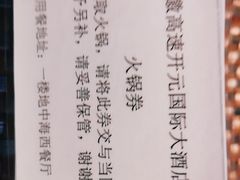 徽高速开元国际大酒店
火锅券
取火锅，请将此券交与当
不另补，请妥善保管，谢谢
用餐地址：一楼地中海西餐厅